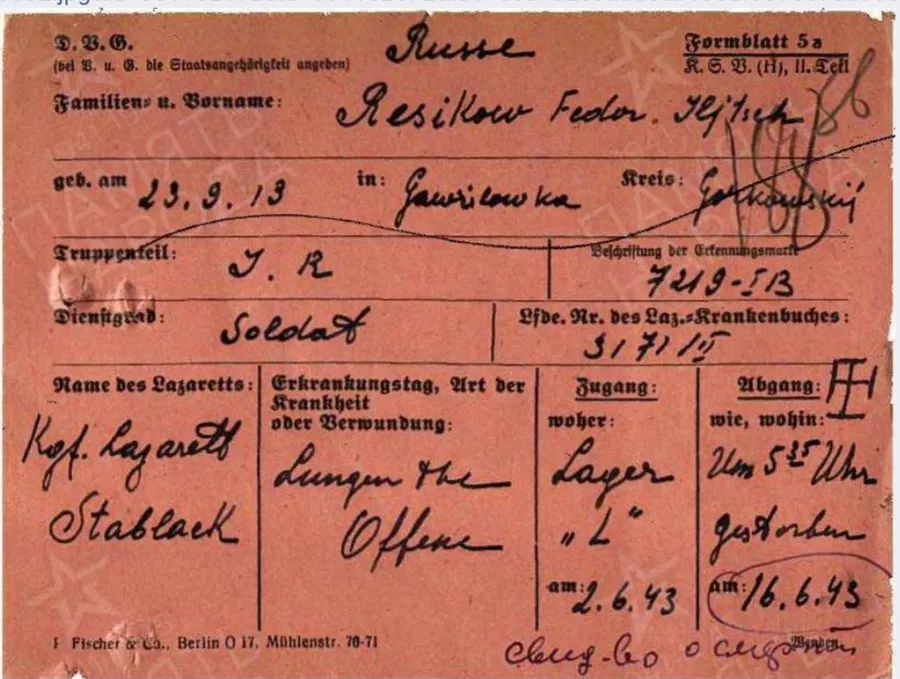 D. V. G. Russe
(bei V. u. G. die Staatsangehörigkeit angeben)
Formblatt 5a
K. S. V. (H), II. Teil
Familien= u. Vorname: Resikow Fedor. Iljitsch
geb. am 23.9.13 in: Gawrilowka Kreis: Gorkowskij
Truppenteil: J. R
Beschriftung der Erkennungsmarke
7219-IB
Dienstgrad: Soldat
Lfde. Nr. des Laz.=Krankenbuches:
3171/II
Name des Lazaretts:
Kgf. Lazarett
Stablack
Erkrankungstag, Art der
Krankheit
oder Verwundung:
Lungen tbc
Offene
Zugang:
woher:
Lager
„L"
am: 2.6.43
Abgang:
wie, wohin:
Um 5 35 Uhr
gestorben
am: 16.6.43
Fischer & Co., Berlin O 17, Mühlenstr. 70-71
Wenden
свид-во о смерти
ПАМЯТЬ
НАРОДА